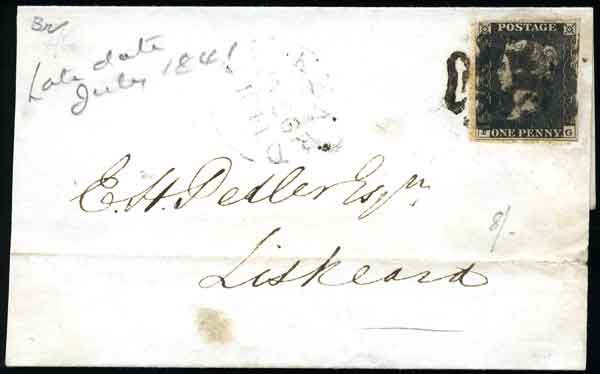 Late date
July 1841
POSTAGE
ONE PENNY G
E. H. Pedler Esqr.
8/-
Liskeard